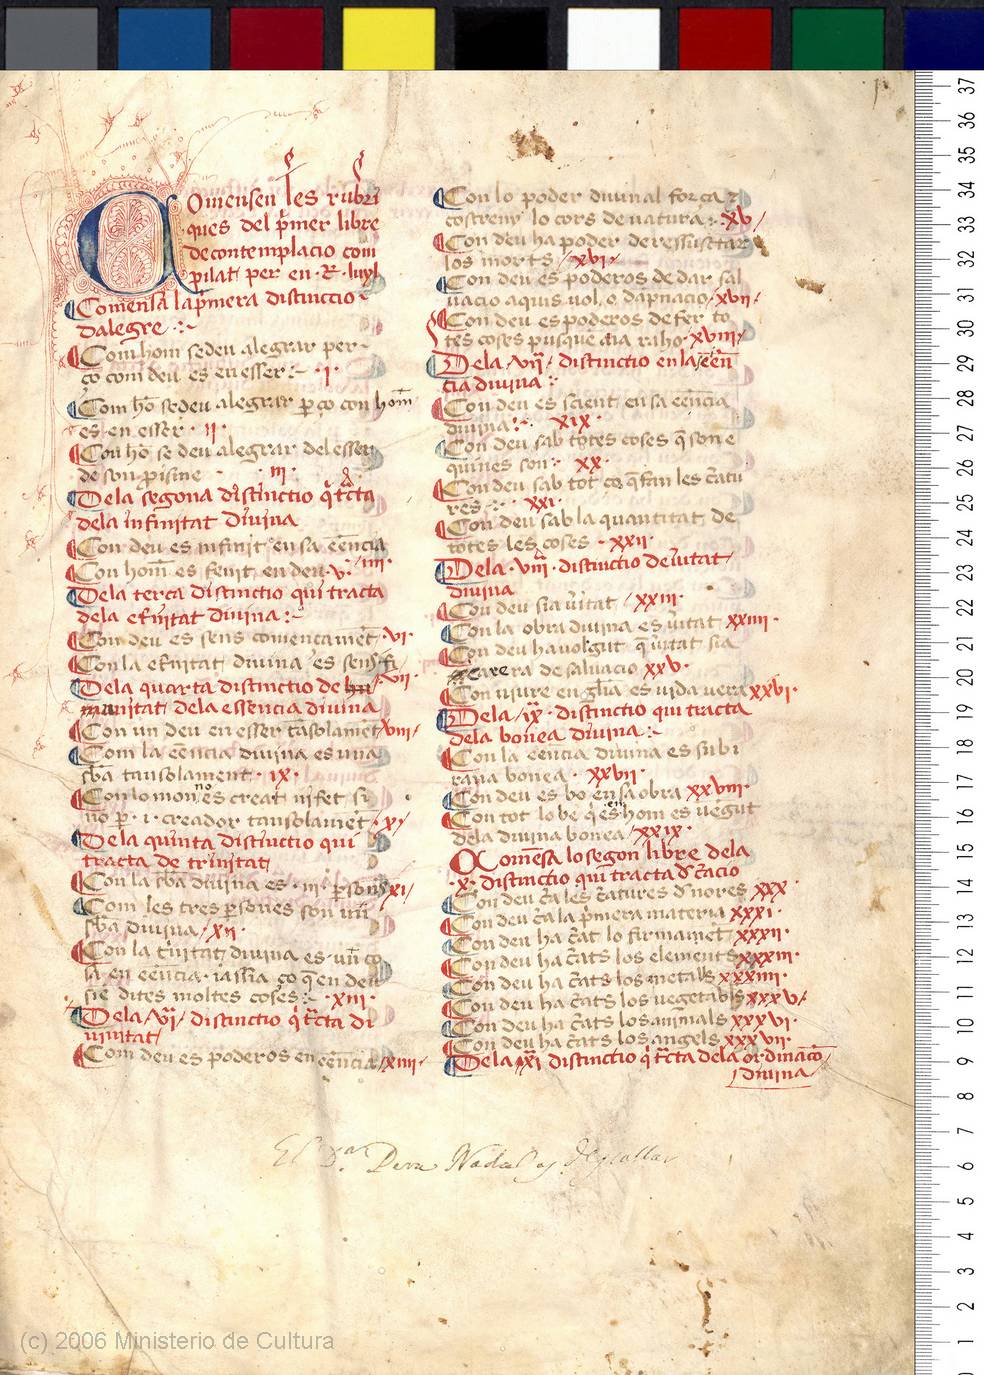 Comensen les rubri
ques del pͥmer libre
de contemplacio com
pilat per en · R · luyl
Comensa la pͥmera distinccio
dalegre
Com hom se deu alegrar per
ço com deu es en esser · I ·
Com hō se deu alegrar p̲ ço con hom̄
es en esser · II ·
Con hō se deu alegrar del esser
de son p̲isme · III ·
De la segona distinctio q̄ tͣcta
de la infinitat diuina
Con deu es infinit en sa eēncia
IIII ·
Con hom̄ es fenit en deu · V ·
De la terça distinctio qui tracta
de la et̄nitat diuina
Con deu es sens comencamēt · VI ·
Con la et̄nitat diuina es sens fi
· VII ·
De la quarta distinctio de
unitat de la essencia diuina
Con un deu en esser tāsolamēt VIII
Com la eēncia diuina es una
sb̄a tansolament · IX ·
Con lo mon no es creat ni fet si
no p̲ · I · creador tansolamēt · X
De la quinta distinctio qui
tracta de trinitat
Con la sb̄a diuina es · III · p̲sones XI
Com les tres p̲sones son un̄
sb̄a diuina / XII ·
Con la tͥnitat diuina es
en eēncia ço q̄ en deu
sie dites moltes coses · XIII ·
De la / VI / distinctio q̄ tͣcta di
uinitat
Com deu es poderos en eēncia / XIIII
Con lo poder diuinal força
costrenỳ lo cors de natura · XV /
Con deu ha poder de ressuscitar
los morts / XVI ·
Con deu es poderos de dar sal
uacio aquis uol o dāpnacio / XVII /
Con deu es poderos de fer to
tes coses pusque raho · XVIII
De la / VII / distinctio en la
cia diuina
Con deu es scient en sa eēncia
diuina · XIX ·
Con deu sab totes coses q̄ son e
quines son · XX ·
Con deu sab tot ço q̄ fan les cͣatu
res · XXI ·
Con deu sab la quantitat de
totes les coses · XXII ·
De la · VIII · distinctio de uͥitat
diuina
Con deu sia uͥitat / XXIII ·
Con la obra diuina es uͥitat XXIIII ·
Con deu ha uolgut q̄ uͥitat sia
carera de saluacio XXV ·
Con uiure en gl̄ia es uida uera XXVI ·
De la / IX · distinctio qui tracta
de la bonea diuina
Con la eēncia diuina es subi
rana bonea · XXVII ·
Con deu es bo en sa obra XXVIII ·
Con tot lo be q̄ es en hom es uegut
de la diuina bonea / XXIX ·
Comēsa lo segon libre de la
· X · distinctio qui tracta d cͣacio
Con deu cͣa les cͣatures d nores XXX ·
Con deu cͣa la pͥmera materia XXXI ·
Con deu ha cͣat lo firmamēt XXXII ·
Con deu ha cͣats los elements XXXIII ·
Con deu ha cͣats los metalls XXXIIII ·
Con deu ha cͣats los vegetabls XXXV /
Con deu ha cͣats los animals XXXVI ·
Con deu ha cͣats los angels XXXVII ·
De la / XI distinctio q̄ tͣcta de la ordinacio
diuina
El Dr. Nadal
(c) 2006 Ministerio de Cultura
37
36
35
34
33
32
31
30
29
28
27
26
25
24
23
22
21
20
19
18
17
16
15
14
13
12
11
10
9
8
7
6
5
4
3
2
1